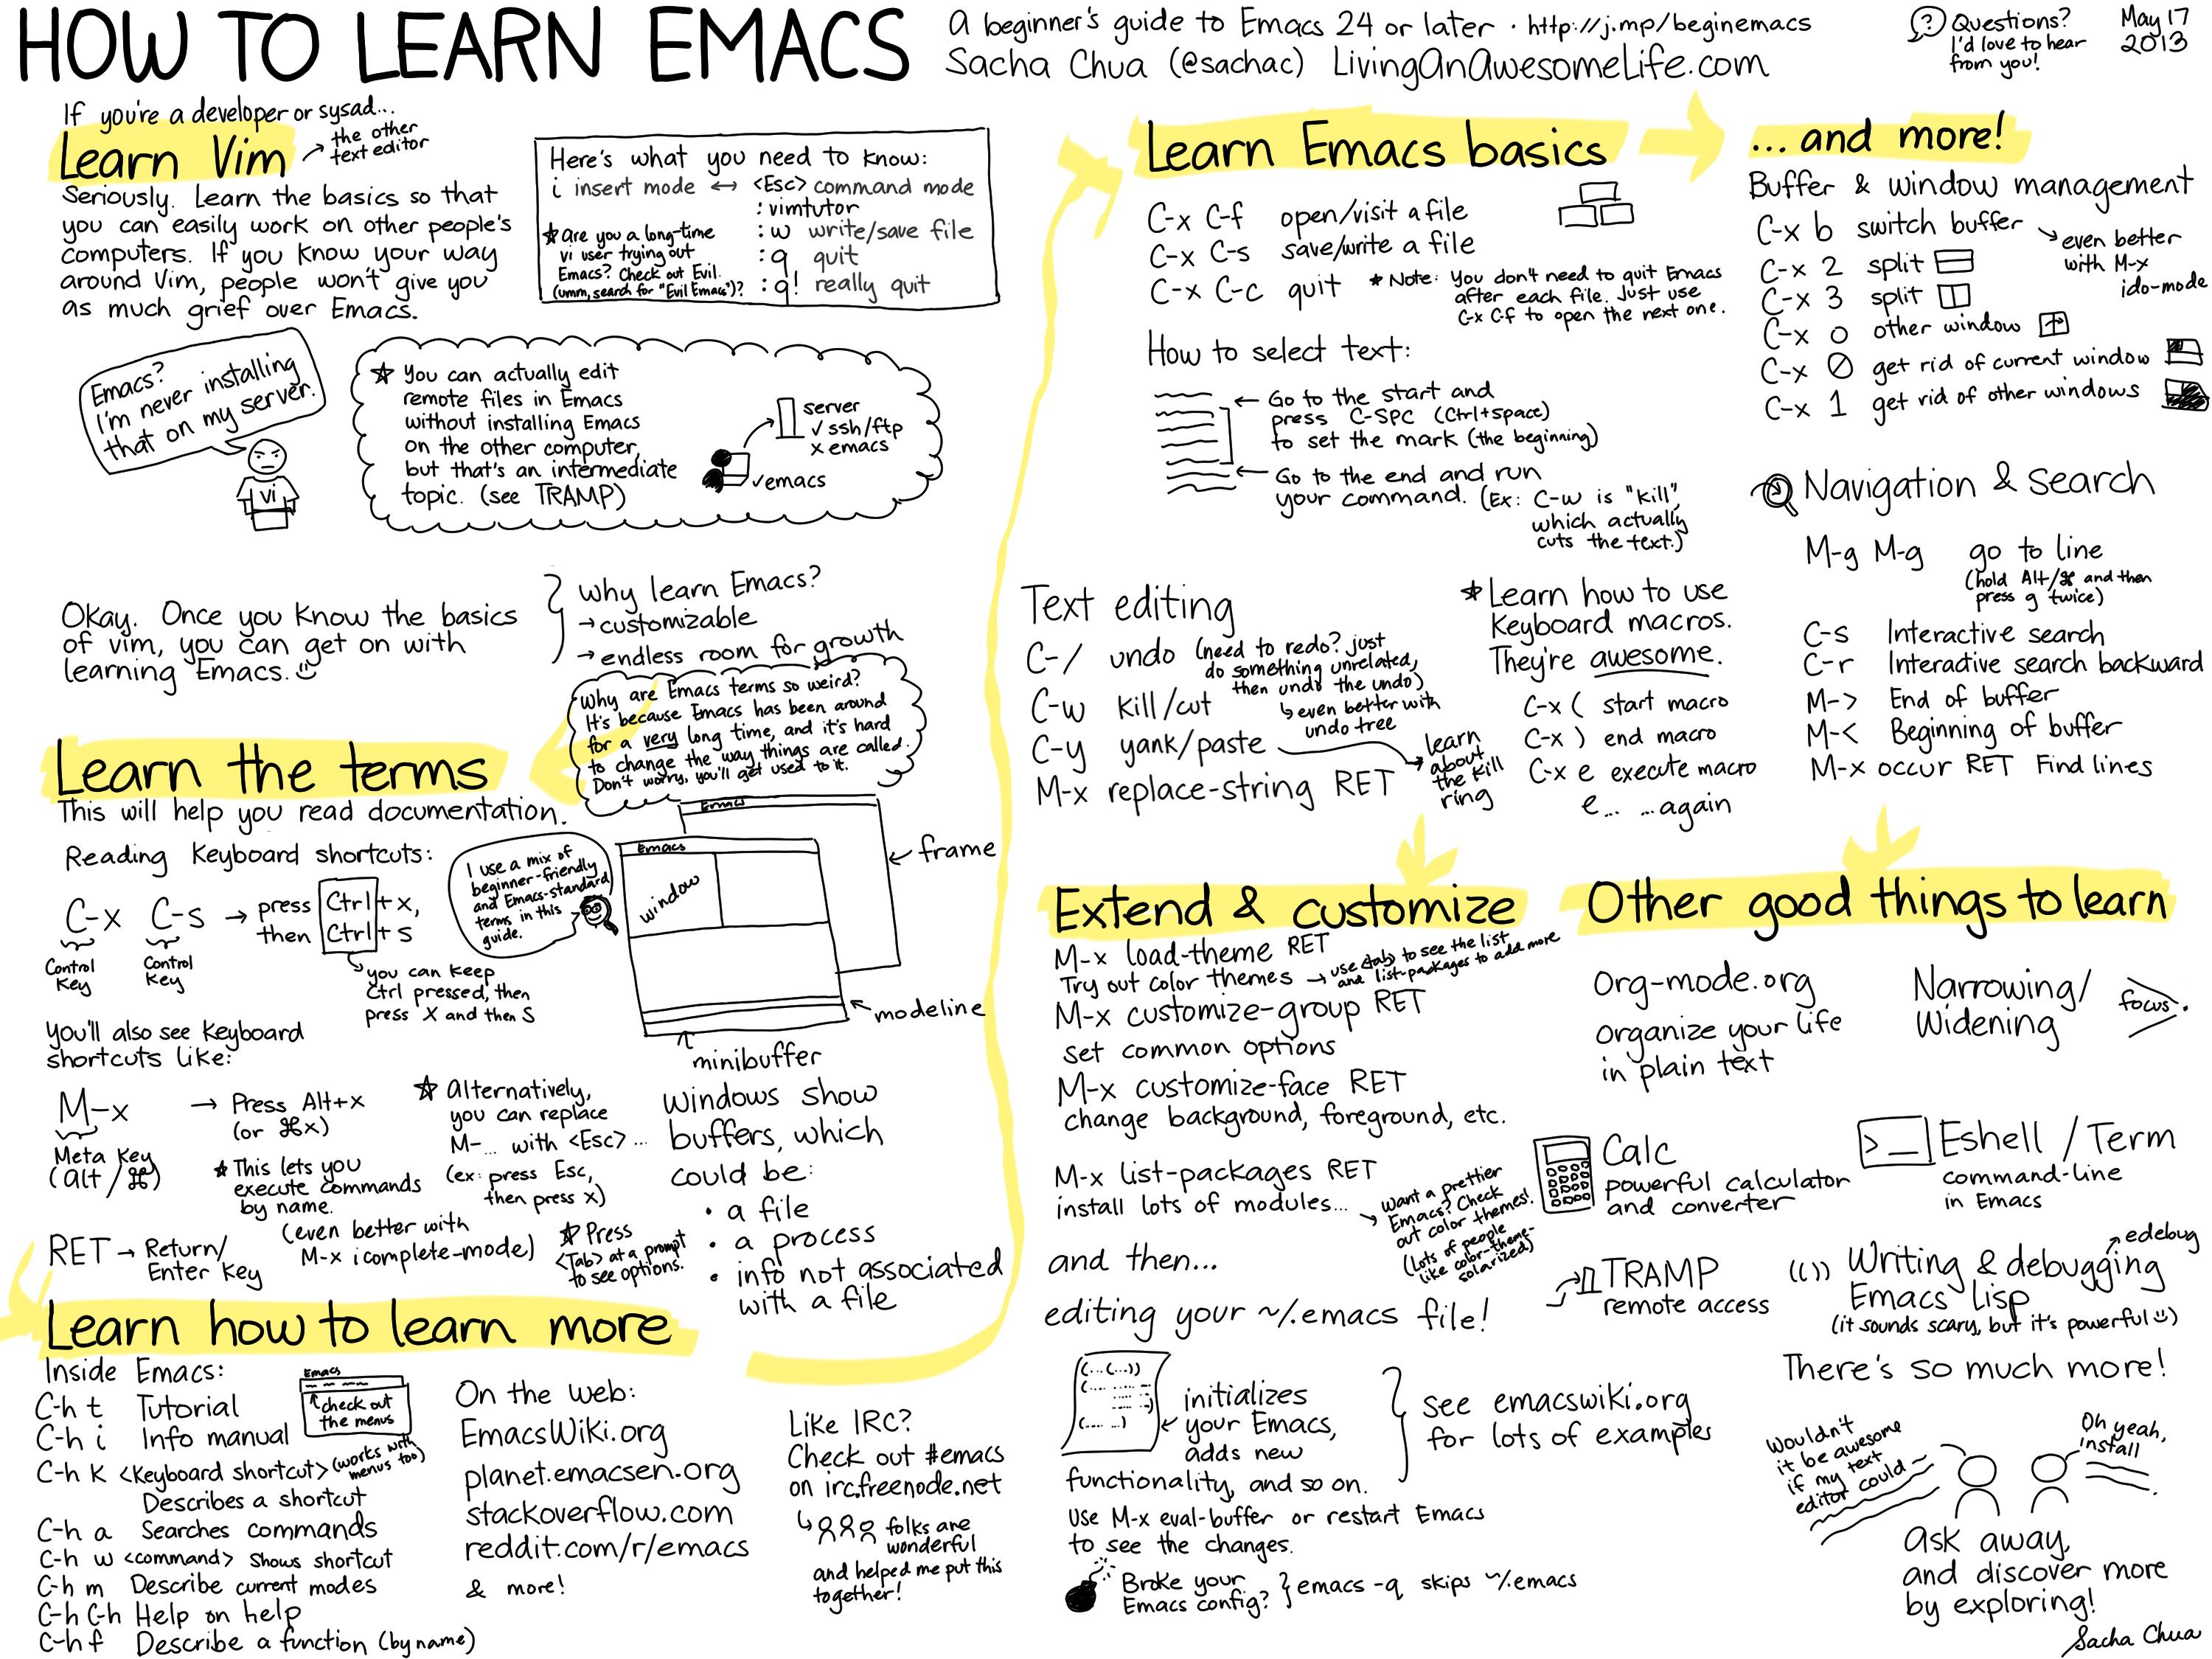 HOW TO LEARN EMACS
A beginner's guide to Emacs 24 or later · http://j.mp/beginemacs
Sacha Chua (@sachac) LivingAnAwesomeLife.com
Questions?
I'd love to hear
from you!
May 17
2013
If you're a developer or sysad...
Learn Vim
the other
text editor
Seriously. Learn the basics so that
you can easily work on other people's
computers. If you know your way
around Vim, people won't give you
as much grief over Emacs.
Here's what you need to know:
i insert mode ↔ <Esc> command mode
:vimtutor
:w write/save file
:q quit
:q! really quit
★ Are you a long-time
vi user trying out
Emacs? Check out Evil.
(umm, search for "Evil Emacs")?
Emacs?
I'm never installing
that on my server.
vi
★ You can actually edit
remote files in Emacs
without installing Emacs
on the other computer,
but that's an intermediate
topic. (see TRAMP)
server
✓ ssh/ftp
x emacs
✓emacs
Okay. Once you know the basics
of vim, you can get on with
learning Emacs.
Why learn Emacs?
→ customizable
→ endless room for growth
Why are Emacs terms so weird?
It's because Emacs has been around
for a very long time, and it's hard
to change the way things are called.
Don't worry, you'll get used to it.
Learn the terms
This will help you read documentation.
Reading keyboard shortcuts:
C-x C-s → press Ctrl + x,
then Ctrl + s
Control
key
Control
key
you can keep
Ctrl pressed, then
press X and then S
I use a mix of
beginner-friendly
and Emacs-standard
terms in this
guide.
Emacs
Emacs
window
← frame
← modeline
minibuffer
You'll also see keyboard
shortcuts like:
M-x → Press Alt+x
(or ⌘x)
Meta key
(alt/⌘)
★ This lets you
execute commands
by name.
(even better with
M-x icomplete-mode)
★ Alternatively,
you can replace
M-... with <Esc>...
(ex: press Esc,
then press x)
RET → Return/
Enter key
★ Press
<Tab> at a prompt
to see options.
Windows show
buffers, which
could be:
• a file
• a process
• info not associated
with a file
Learn how to learn more
Inside Emacs:
C-h t Tutorial
C-h i Info manual
C-h k <keyboard shortcut> (works with
menus too)
Describes a shortcut
C-h a Searches commands
C-h w <command> shows shortcut
C-h m Describe current modes
C-h C-h Help on help
C-h f Describe a function (by name)
Emacs
check out
the menus
On the web:
EmacsWiki.org
planet.emacsen.org
stackoverflow.com
reddit.com/r/emacs
& more!
Like IRC?
Check out #emacs
on irc.freenode.net
folks are
wonderful
and helped me put this
together!
Learn Emacs basics
C-x C-f open/visit a file
C-x C-s save/write a file
C-x C-c quit
★ Note: You don't need to quit Emacs
after each file. Just use
C-x C-f to open the next one.
How to select text:
← Go to the start and
press C-SPC (Ctrl+space)
to set the mark (the beginning)
← Go to the end and run
your command. (Ex: C-w is "kill",
which actually
cuts the text.)
Text editing
C-/ undo (need to redo? just
do something unrelated,
then undo the undo)
even better with
undo tree
C-w kill/cut
C-y yank/paste
learn
about
the kill
ring
M-x replace-string RET
★ Learn how to use
keyboard macros.
They're awesome.
C-x ( start macro
C-x ) end macro
C-x e execute macro
e... ...again
...and more!
Buffer & window management
C-x b switch buffer
even better
with M-x
ido-mode
C-x 2 split
C-x 3 split
C-x o other window
C-x 0 get rid of current window
C-x 1 get rid of other windows
Navigation & search
M-g M-g go to line
(hold Alt/⌘ and then
press g twice)
C-s Interactive search
C-r Interactive search backward
M-> End of buffer
M-< Beginning of buffer
M-x occur RET Find lines
Extend & customize
M-x load-theme RET
Try out color themes → use <tab> to see the list
and list-packages to add more
M-x customize-group RET
set common options
M-x customize-face RET
change background, foreground, etc.
M-x list-packages RET
install lots of modules...
want a prettier
Emacs? Check
out color themes!
(Lots of people
like color-theme-
solarized)
and then...
editing your ~/.emacs file!
(...(...))
(....
(.... ...)
initializes
your Emacs,
adds new
functionality, and so on.
see emacswiki.org
for lots of examples
use M-x eval-buffer or restart Emacs
to see the changes.
Broke your
Emacs config?
emacs -q skips ~/.emacs
Other good things to learn
Org-mode.org
organize your life
in plain text
Narrowing/
Widening
focus.
Calc
powerful calculator
and converter
>_
Eshell / Term
command-line
in Emacs
TRAMP
remote access
(()) Writing & debugging
Emacs Lisp
edebug
(it sounds scary, but it's powerful)
There's so much more!
Wouldn't
it be awesome
if my text
editor could
Oh yeah,
install
ask away,
and discover more
by exploring!
Sacha Chua